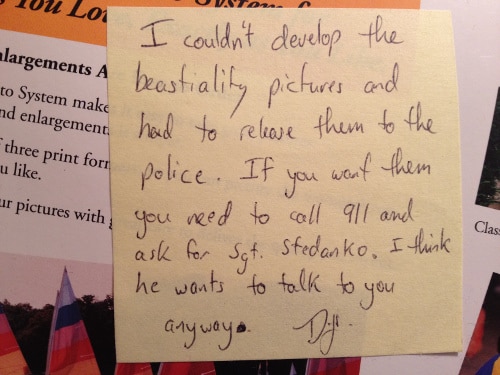 You Lo
System
nlargements A
to System make
nd enlargement
three print form
u like.
ur pictures with
I couldn't develop the
beastiality pictures and
had to release them to the
police. If you want them
you need to call 911 and
ask for Sgt. Stedanko. I think
he wants to talk to you
anyway.
Class